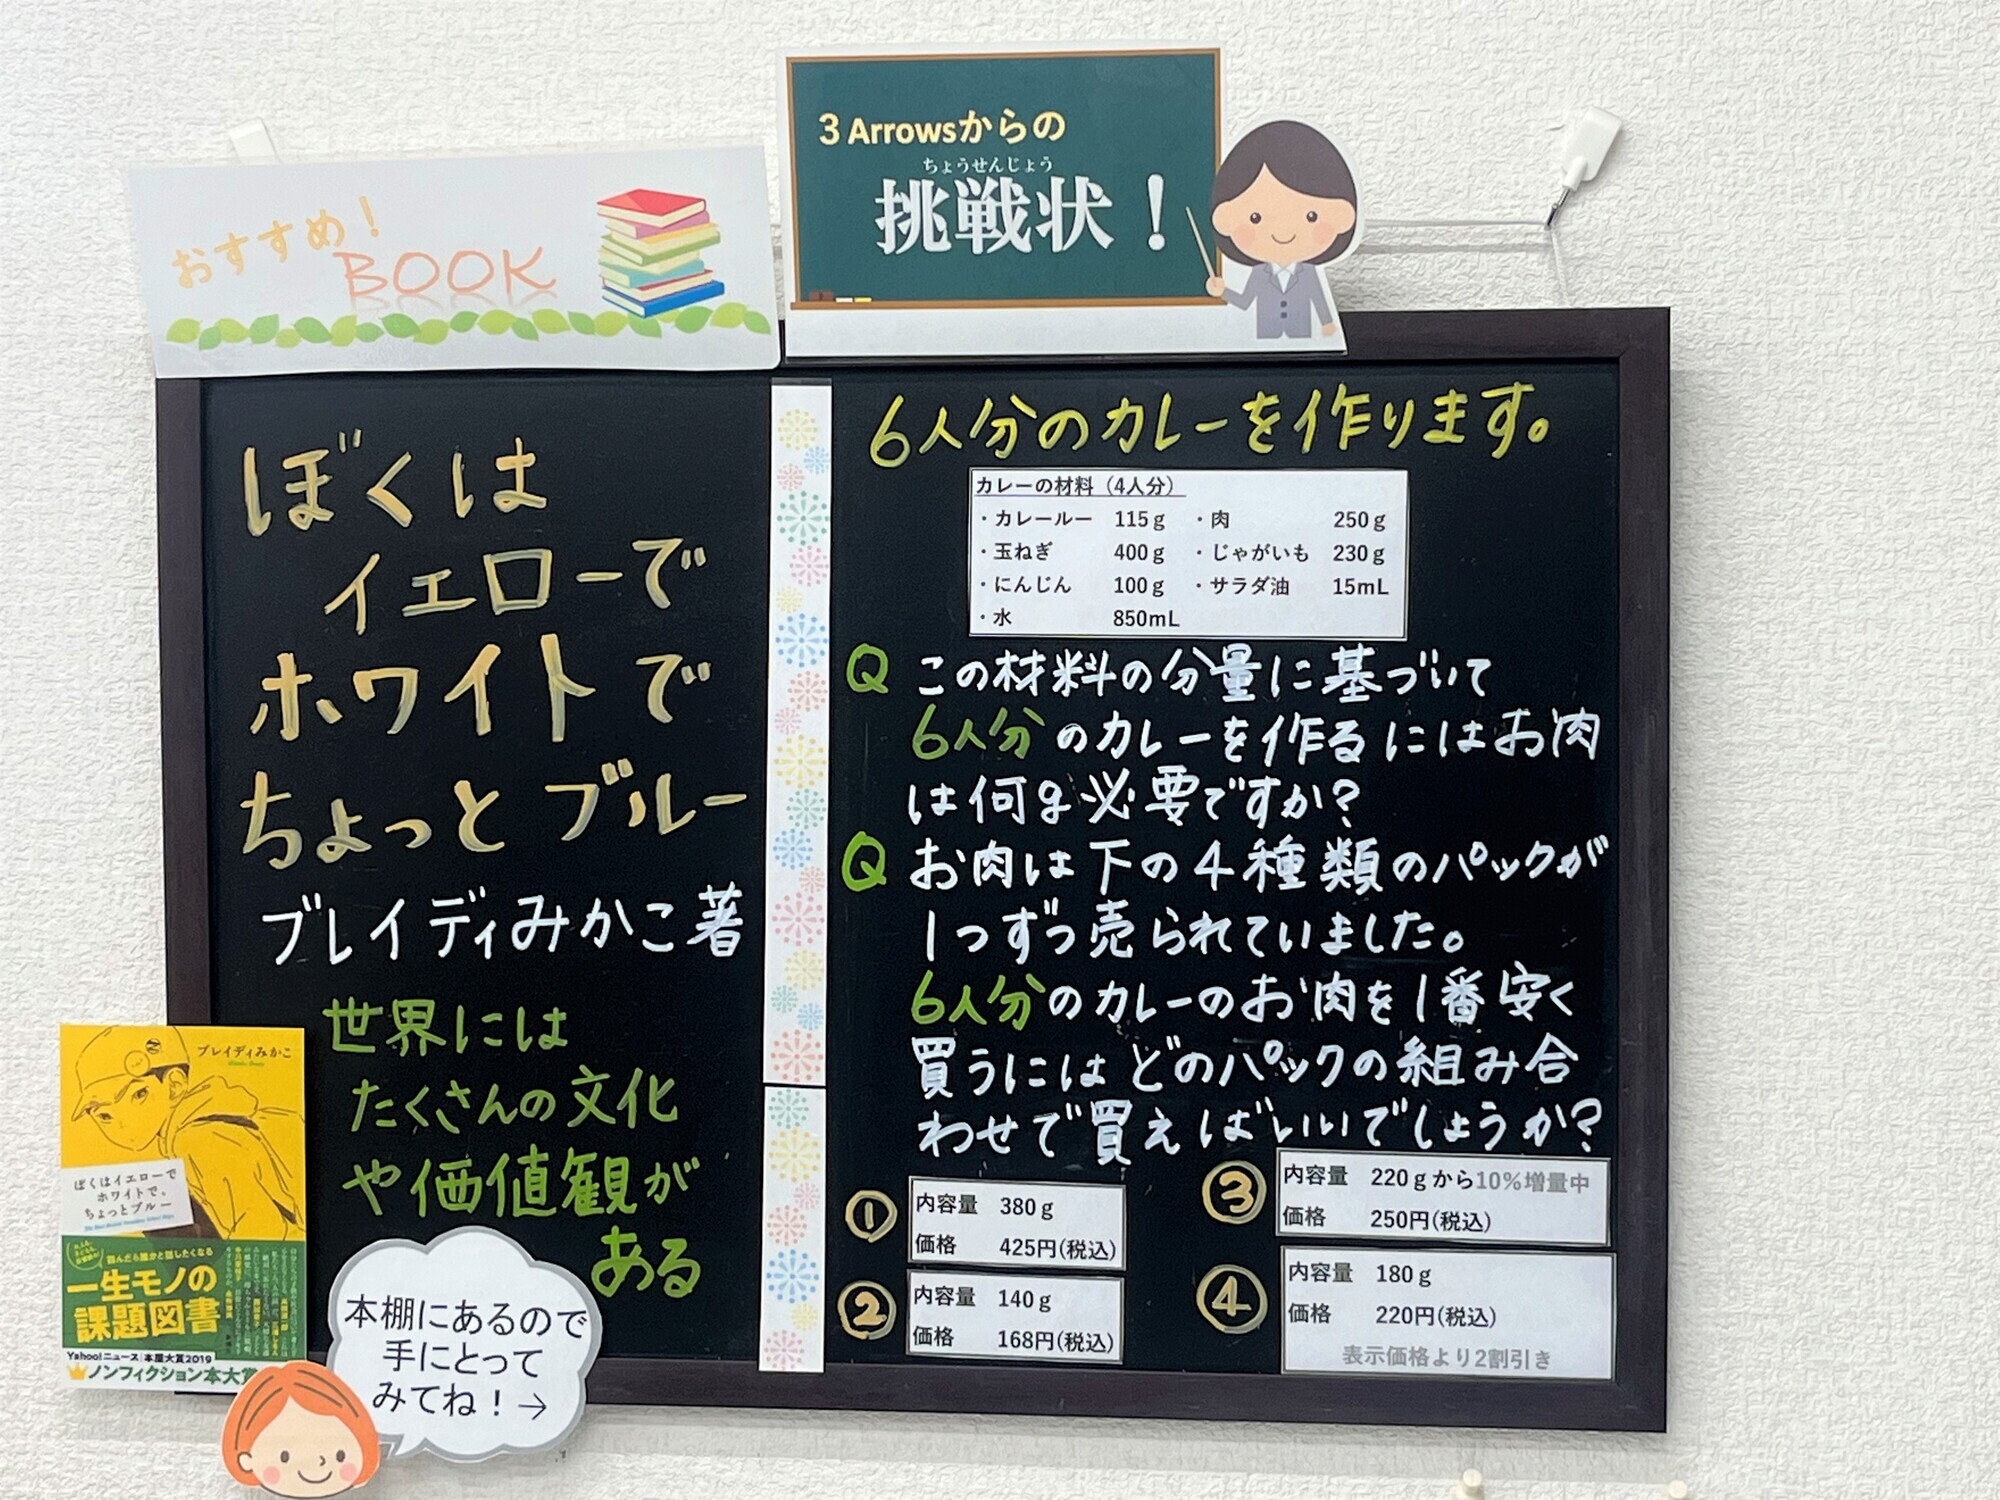 おすすめ！
BOOK
ぼくは
イエローで
ホワイトで
ちょっとブルー
ブレイディみかこ著
世界には
たくさんの文化
や価値観が
ある
ブレイディみかこ
ぼくはイエローで
ホワイトで、
ちょっとブルー
読んだら誰かと話したくなる
一生モノの
課題図書
Yahoo!ニュース|本屋大賞2019
ノンフィクション本大賞
本棚にあるので
手にとって
みてね！→
3 Arrowsからの
ちょうせんじょう
挑戦状！
6人分のカレーを作ります。
カレーの材料（4人分）
・カレールー 115g ・肉 250g
・玉ねぎ 400g ・じゃがいも 230g
・にんじん 100g ・サラダ油 15mL
・水 850mL
Q この材料の分量に基づいて
6人分のカレーを作るにはお肉
は何g必要ですか?
Q お肉は下の4種類のパックが
1つずつ売られていました。
6人分のカレーのお肉を1番安く
買うにはどのパックの組み合
わせで買えばいいでしょうか?
① 内容量 380g
価格 425円(税込)
② 内容量 140g
価格 168円(税込)
③ 内容量 220gから10%増量中
価格 250円(税込)
④ 内容量 180g
価格 220円(税込)
表示価格より2割引き